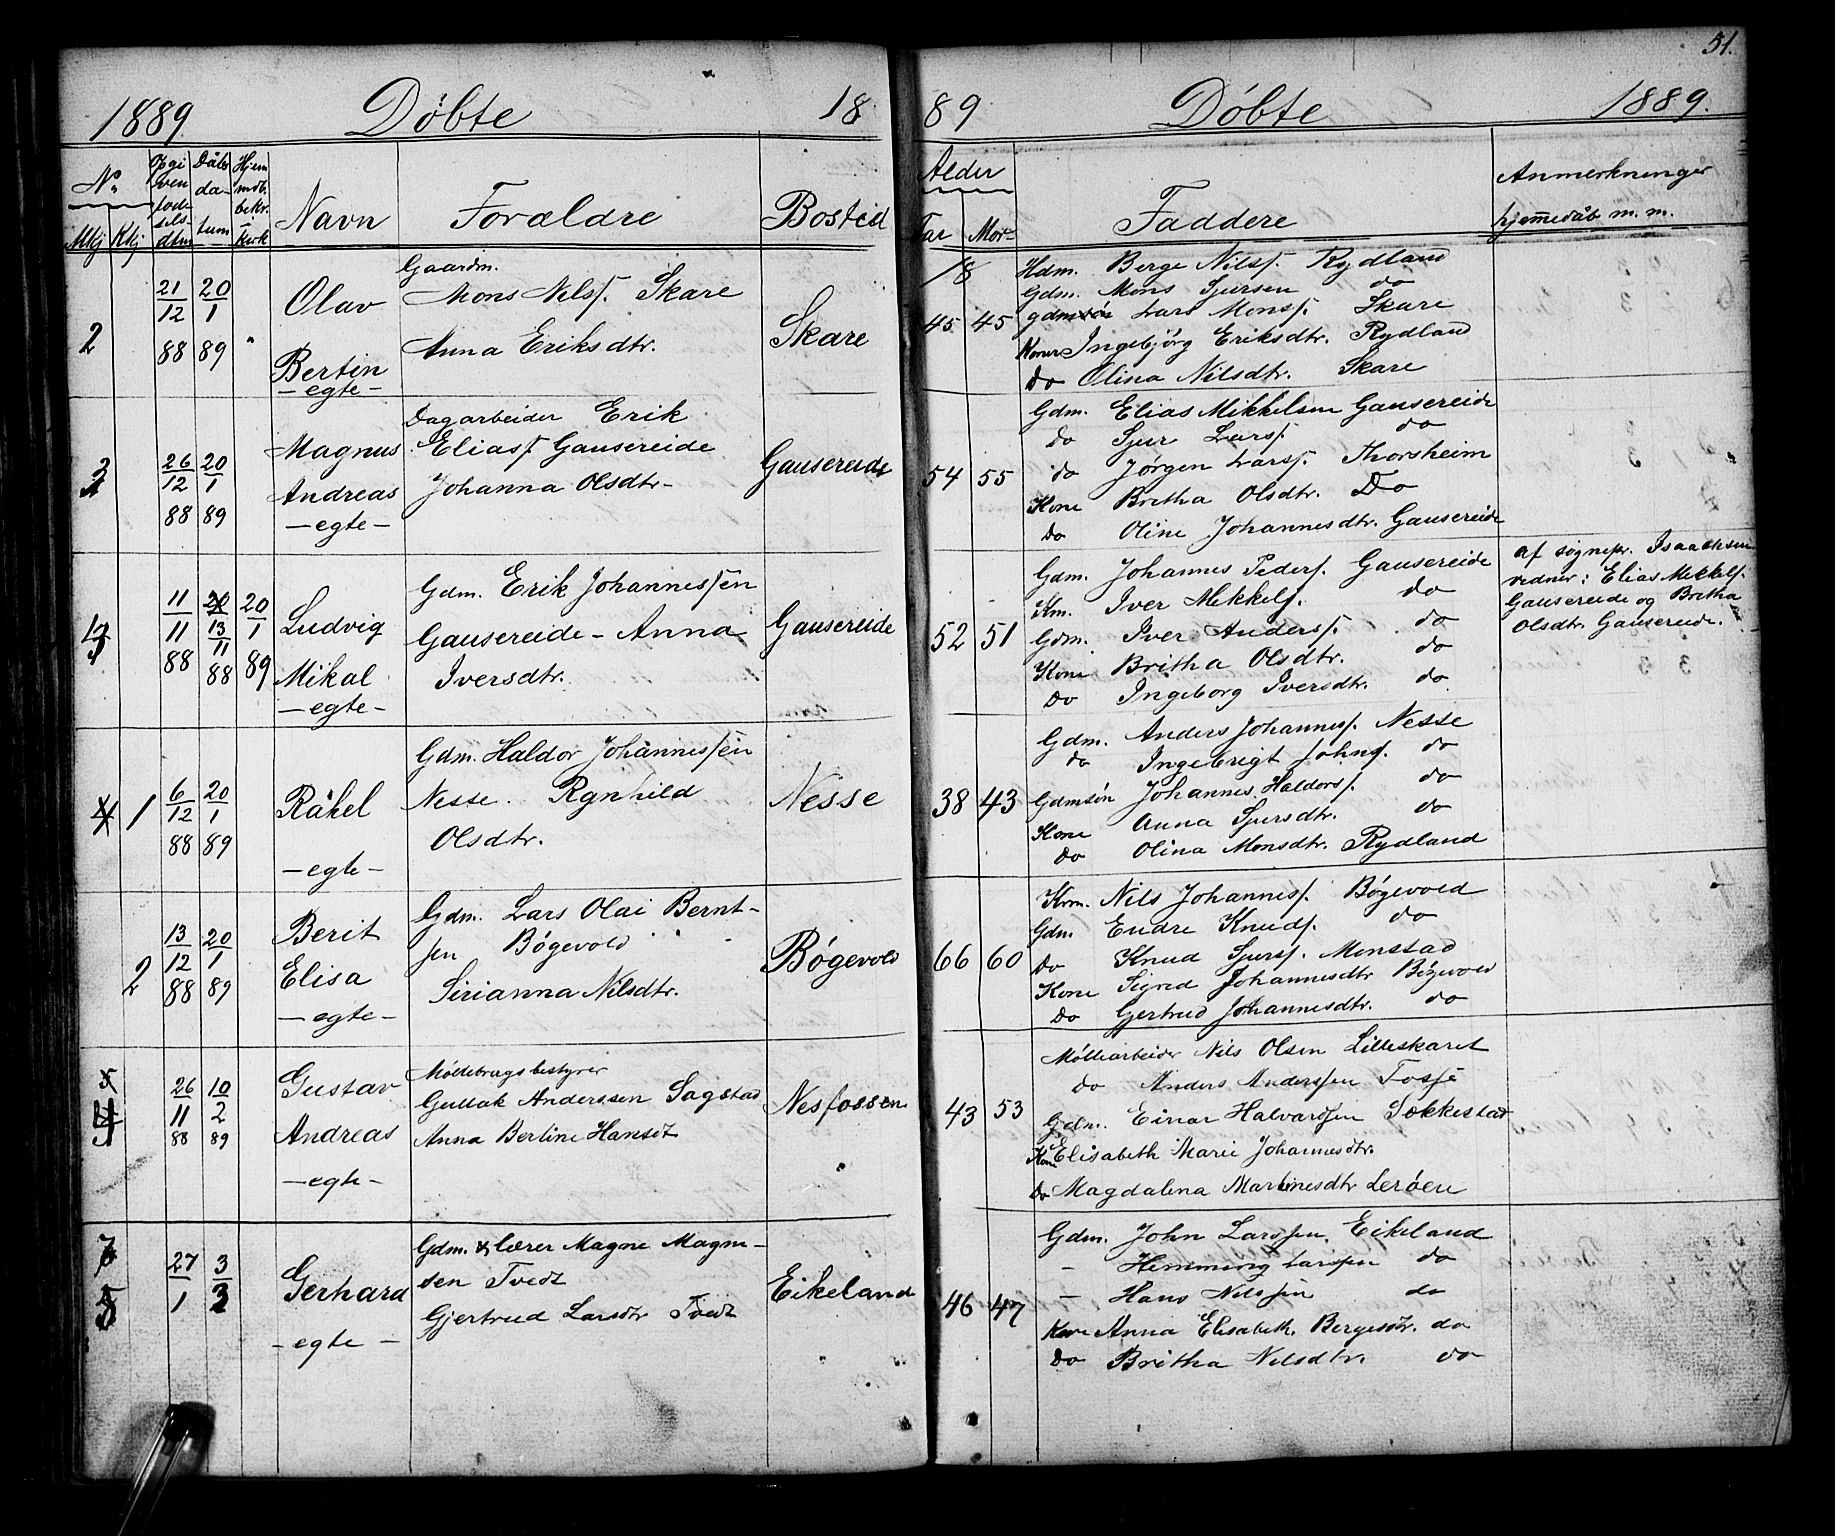 51.
1889. Döbte 18
89 Döbte 1889.
No. Mkj Kkj
Opgi ven föd sels dtm
Dåbs da- tum
Hjem mdb. bekr. i kirk
Navn
Forældre
Bosted
Alder Far Mor
Faddere
Anmerkninger hjemmedåb m. m.
2
21/12 88
20/1 89
"
Olav
Bertin
- egte -
Gaardm.
Mons Nilsf. Skare
Anna Eriksdtr.
Skare
18
45 45
Hdm. Berge Nilsf. Rydland
Gdm. Mons Sjursen do
gdmsön Lars Monsf. Skare
Koner Ingebjörg Eriksdtr. Rydland
Do Olina Nilsdtr. Skare
26/12 88
20/1 89
Magnus
Andreas
- egte -
Dagarbeider Erik
Eliasf. Gausereide
Johanna Olsdtr-
Gausereide
54 55
Gdm. Elias Mikkelsen Gausereide
do Sjur Larsf. do
do Jörgen Larsf. Thorsheim
Kone Britha Olsdtr. Do
Do Oline Johannesdtr. Gausereide
11/11 88
20 13/11 88
20/1 89
Ludvig
Mikal
- egte -
Gdm. Erik Johannesſen
Gausereide - Anna
Iversdtr.
Gausereide
52 51
Gdm. Johannes Pedersf. Gausereide
Km. Iver Mikkelsf. do
Gdm. Iver Andersf. do
Kone Britha Olsdtr. do
Do Ingeborg Iversdtr. do
af sognepr. Isaachsen
vidner: Elias Mikkelsf.
Gausereide og Britha
Olsdtr. Gausereide.
4 1
6/12 88
20/1 89
Råkel
- egte -
Gdm. Haldor Johannesſen
Nesse. Rgnhild
Olsdtr.
Nesse
38 43
Gdm. Anders Johannesf. Nesse
do Ingebrigt Johnsf. do
Gdmsön Johannes Haldorsf. do
Kone Anna Sjursdtr. do
Do Olina Monsdtr. Rydland
2
13/12 88
20/1 89
Berit
Elisa
- egte -
Gdm. Lars Olai Bernt-
sen Bögevold
Sirianna Nilsdtr.
Bögevold
66 60
Krm. Nils Johannesf. Bögevold
Gdm. Endre Knudsf. do
Do Knud Sjursf. Monstad
Kone Sigrid Johannesdtr Bögevold
Do Gertrud Johannesdtr. do
26/11 88
10/2 89
Gustav
Andreas
- egte -
Möllebrugsbestyrer
Gullak Anderssen Sagstad
Anna Berline Hansdt
Nesfossen
43 53
Möllearbeider Nils Olsen Lilleskaret
do Anders Andersſen Fosse
Gdm. Einar Halvardſen Tokkestad
Kone Elisabeth Marie Johannesdtr.
Do Magdalena Martinesdtr Leröen
5
27/1
3/3
Gerhard
- egte -
Gdm. & lærer Magne Magne-
sen Tvedt
Gjertrud Larsdtr Tvedt
Eikeland
46 47
Gdm. John Larsſen Eikeland
- Hemming Larsſen do
- Hans Nilsſen do
Kone Anna Elisabeth Bergesdtr. do
Do Britha Nilsdtr. do